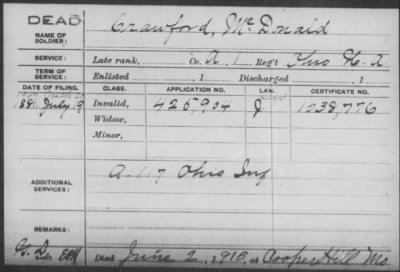 DEAD
NAME OF SOLDIER: Crawford, McDonald
SERVICE: Late rank, Co. A, 1 Reg't Ohio H. A
TERM OF SERVICE: Enlisted , 1 Discharged , 1
DATE OF FILING. CLASS. APPLICATION NO. LAW. CERTIFICATE NO.
188 July 9 Invalid, 425,904 J 1038,776
Widow,
Minor,
ADDITIONAL SERVICES: A. 117 Ohio Inf
REMARKS:
Died June 2, 1915, at Cooper Hill Mo